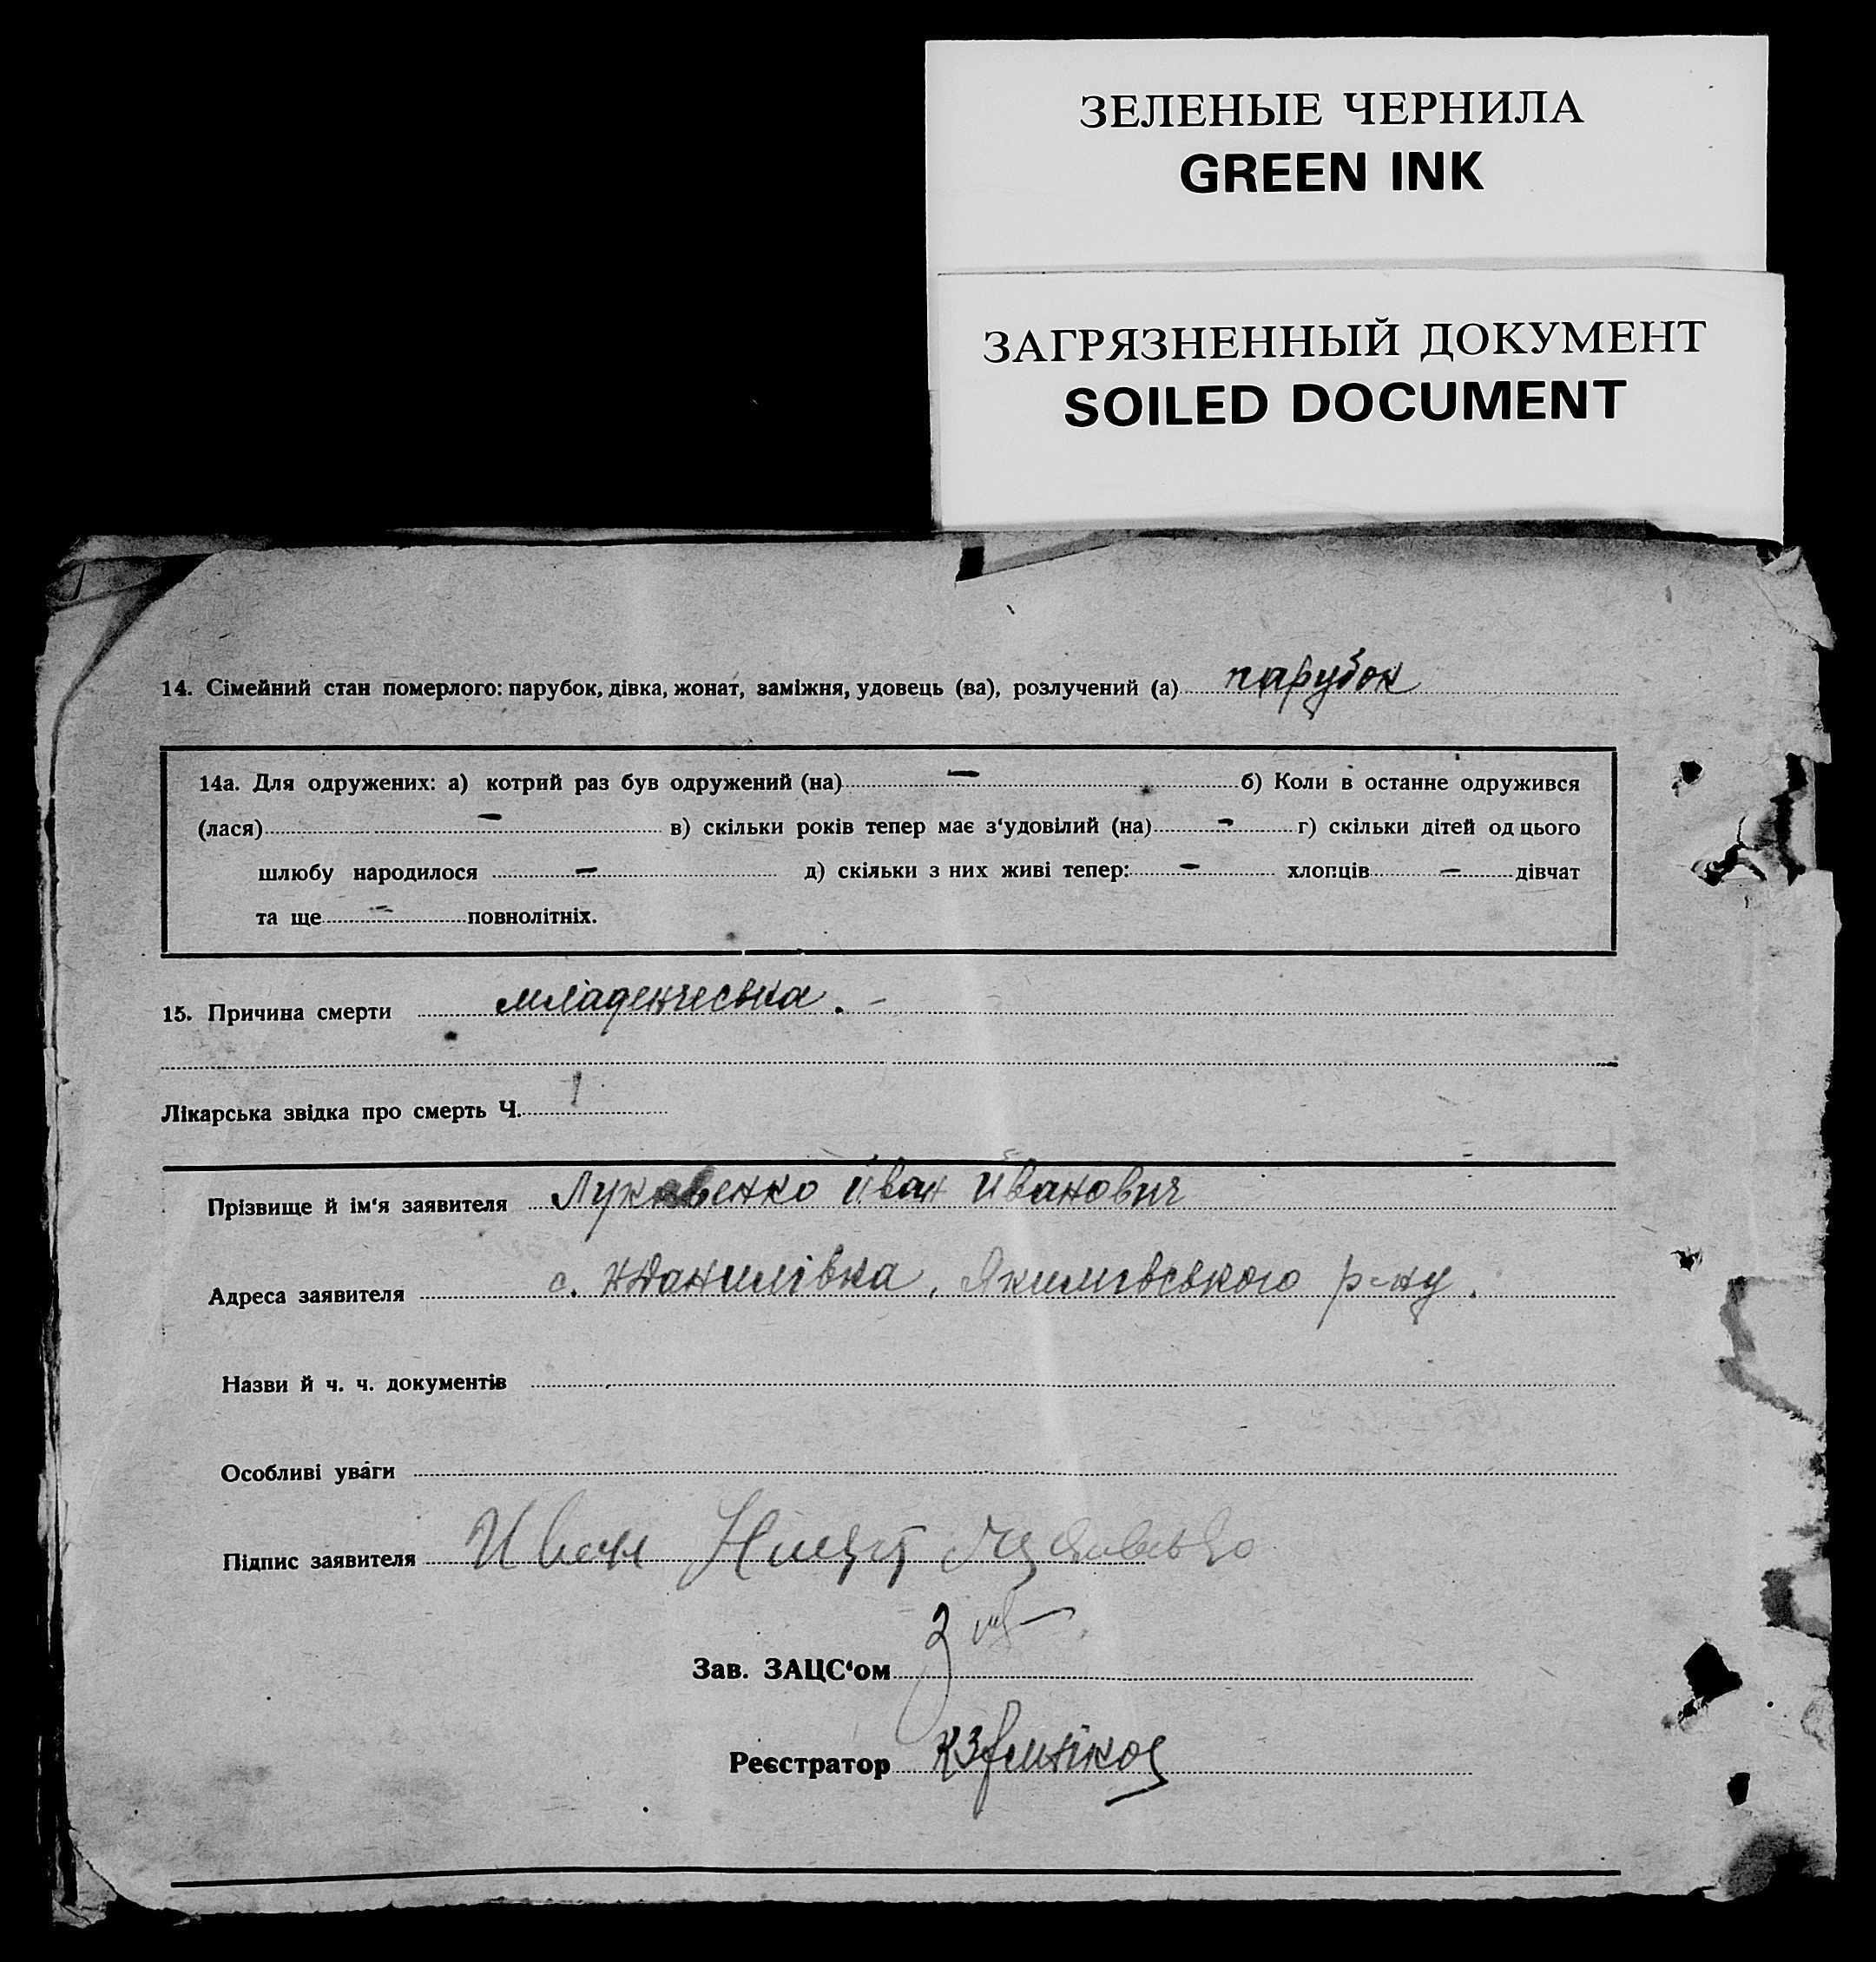 ЗЕЛЕНЫЕ ЧЕРНИЛА
GREEN INK
ЗАГРЯЗНЕННЫЙ ДОКУМЕНТ
SOILED DOCUMENT
14. Сімейний стан померлого: парубок, дівка, жонат, заміжня, удовець (ва), розлучений (а) парубок
14а. Для одружених: а) котрий раз був одружений (на) — б) Коли в останнє одружився
(лася) — в) скільки років тепер має з‘удовілий (на) — г) скільки дітей од цього
шлюбу народилося — д) скільки з них живі тепер: — хлопців — дівчат
та ще — повнолітніх.
15. Причина смерти младенчеська. –
Лікарська звідка про смерть Ч.
Прізвище й ім‘я заявителя Лукавенко Иван Иванович
Адреса заявителя с. Данилівка, Якимівського р-ну.
Назви й ч. ч. документів
Особливі уваги
Підпис заявителя Иван
Зав. ЗАЦС‘ом
Реєстратор